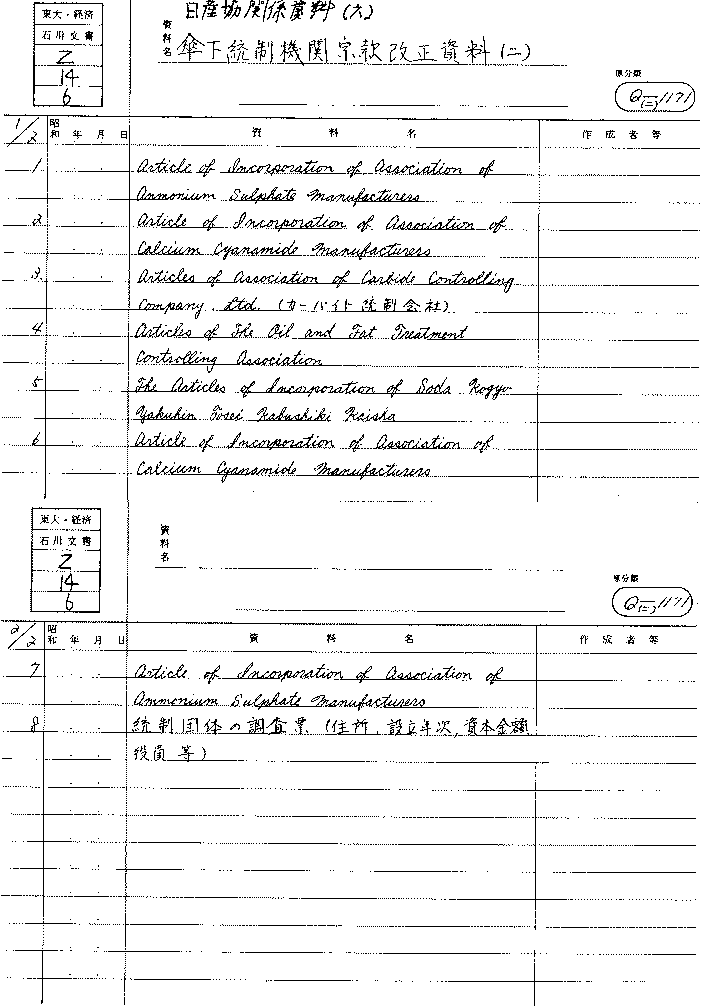 日産協関係資料(六)
東大・経済
石川文書
Z
14
6
資料名
傘下統制機関定款改正資料(二)
原分類
Q(二)1171
1/2 昭和 年 月 日 資 料 名 作成者等
1 Article of Incorporation of Association of
Ammonium Sulphate Manufacturers
2 Article of Incorporation of Association of
Calcium Cyanamide Manufacturers
3 Articles of Association of Carbide Controlling
Company, Ltd. (カーバイト統制会社)
4 Articles of The Oil and Fat Treatment
Controlling Association
5 The Articles of Incorporation of Soda Kogyo
Yakuhin Tosei Kabushiki Kaisha
6 Article of Incorporation of Association of
Calcium Cyanamide Manufacturers
東大・経済
石川文書
Z
14
6
資料名
原分類
Q(二)1171
2/2 昭和 年 月 日 資 料 名 作成者等
7 Article of Incorporation of Association of
Ammonium Sulphate Manufacturers
8 統制団体の調査票(住所,設立年次,資本金額
役員等)